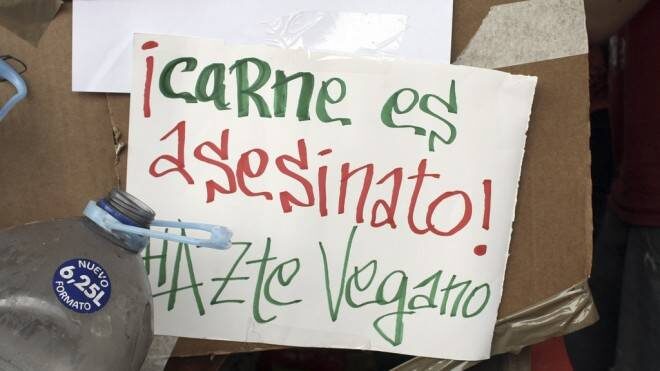 ¡CARNE ES
asesinato!
HAZte Vegano
NUEVO
6,25L
FORMATO